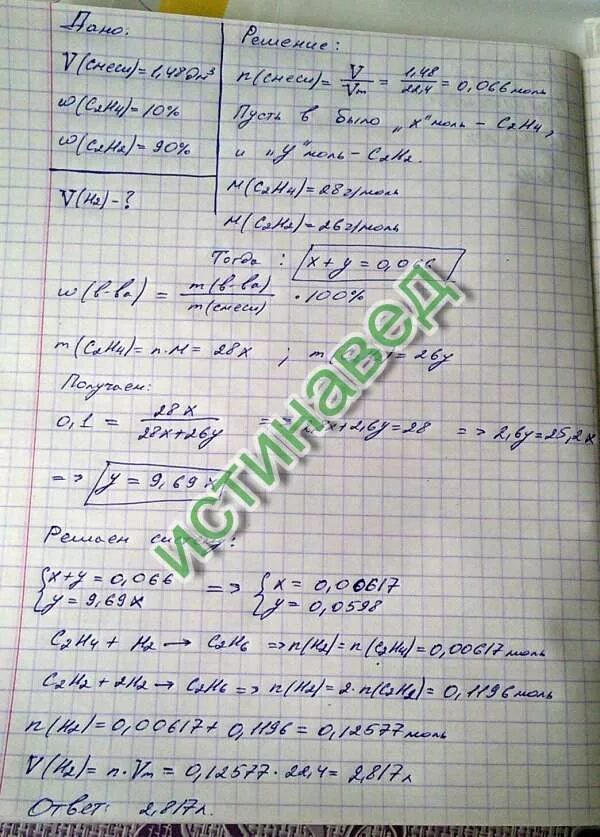 Дано:
V(смеси)=1,48дм³
ω(C₂H₄)=10%
ω(C₂H₂)=90%
V(H₂)-?
Решение:
n(смеси)= V/Vm = 1,48/22,4 = 0,066 моль
Пусть в было „x" моль - C₂H₄,
и „y" моль - C₂H₂.
M(C₂H₄)=28г/моль
M(C₂H₂)=26г/моль
Тогда : x+y=0,066
ω(в-ва) = m(в-ва)/m(смеси) · 100%
m(C₂H₄)=n·M= 28x ; m( )= 26y
Получаем:
0,1 = 28x/28x+26y => 2,8x+2,6y=28 => 2,6y=25,2x
=> y = 9,69x
Решаем систему:
{x+y=0,066 => {x= 0,00617
{y=9,69x {y=0,0598
C₂H₄ + H₂ → C₂H₆ => n(H₂)=n(C₂H₄)=0,00617 моль
C₂H₂ + 2H₂ → C₂H₆ => n(H₂)=2·n(C₂H₂)=0,1196 моль
n(H₂)=0,00617+0,1196=0,12577 моль
V(H₂)= n·Vm = 0,12577·22,4=2,817л
Ответ: 2,817л.
истинавед